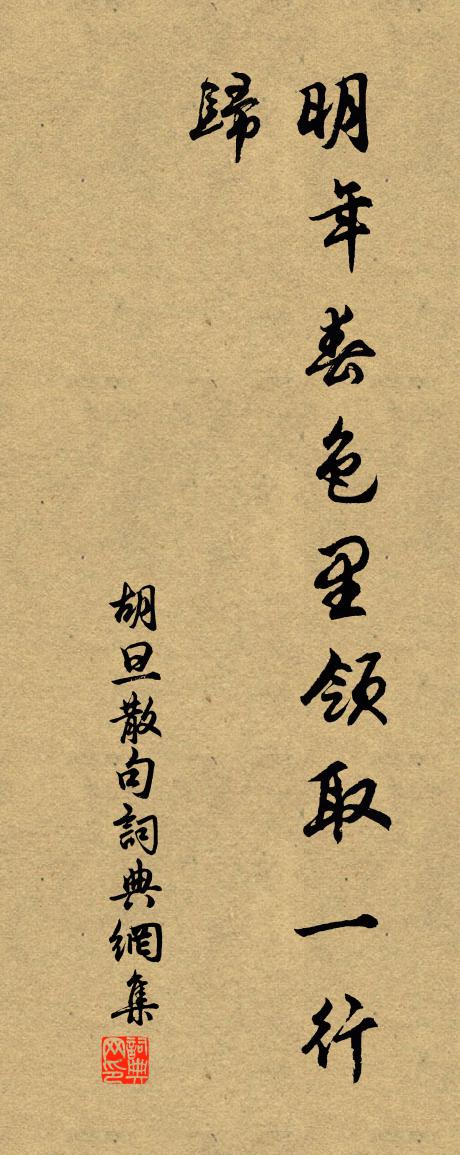 明年春色里領取一行
歸
胡旦散句詞典網集
詞典网印